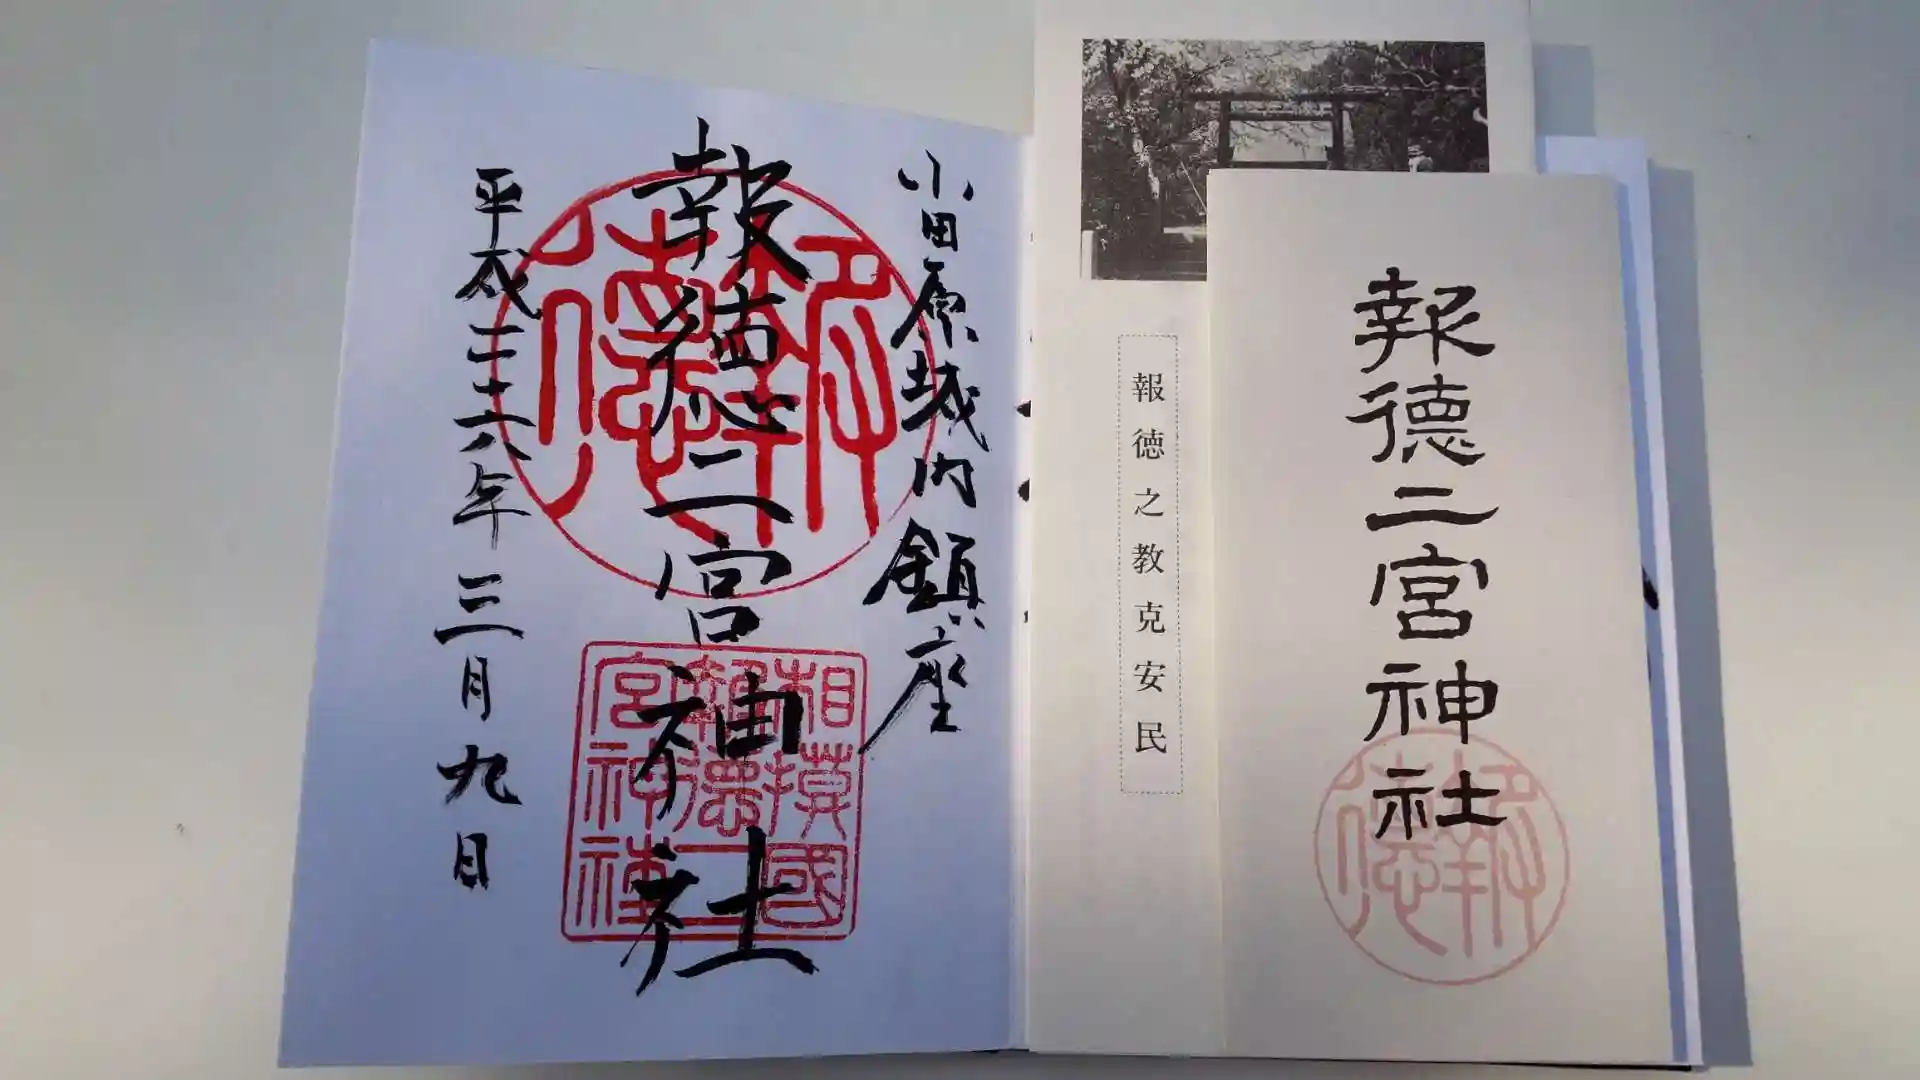 小田原城内鎮座
報徳二宮神社
平成二十六年三月九日
報德
相模國
報德二
宮神社
報徳之教克安民
報徳二宮神社
報德